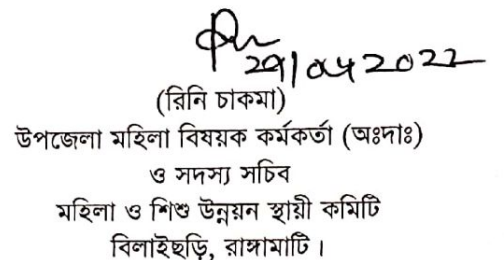 29/04/2022
(রিনি চাকমা)
উপজেলা মহিলা বিষয়ক কর্মকর্তা (অঃদাঃ)
ও সদস্য সচিব
মহিলা ও শিশু উন্নয়ন স্থায়ী কমিটি
বিলাইছড়ি, রাঙ্গামাটি ।